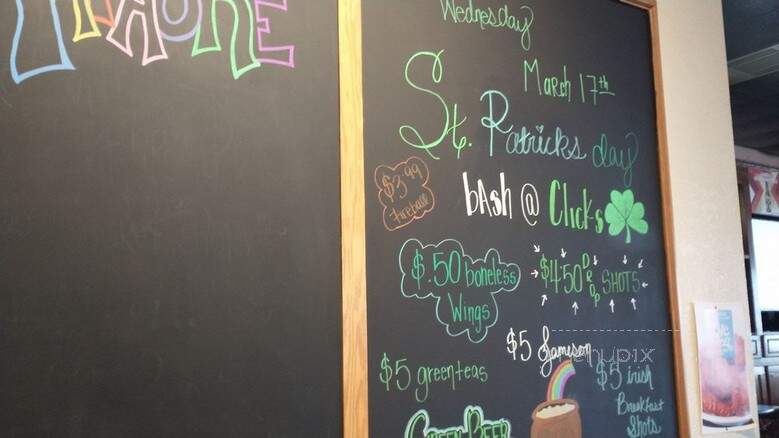 Wednesday
March 17th
St. Patricks day
$3.99
Fireball
bAsh @ Clicks
$.50 boneless
Wings
$4.50 DROP SHOTS
$5 Jameson
$5 greenteas
$5 irish
Breakfast
Shots
GREEN BEER
menupix